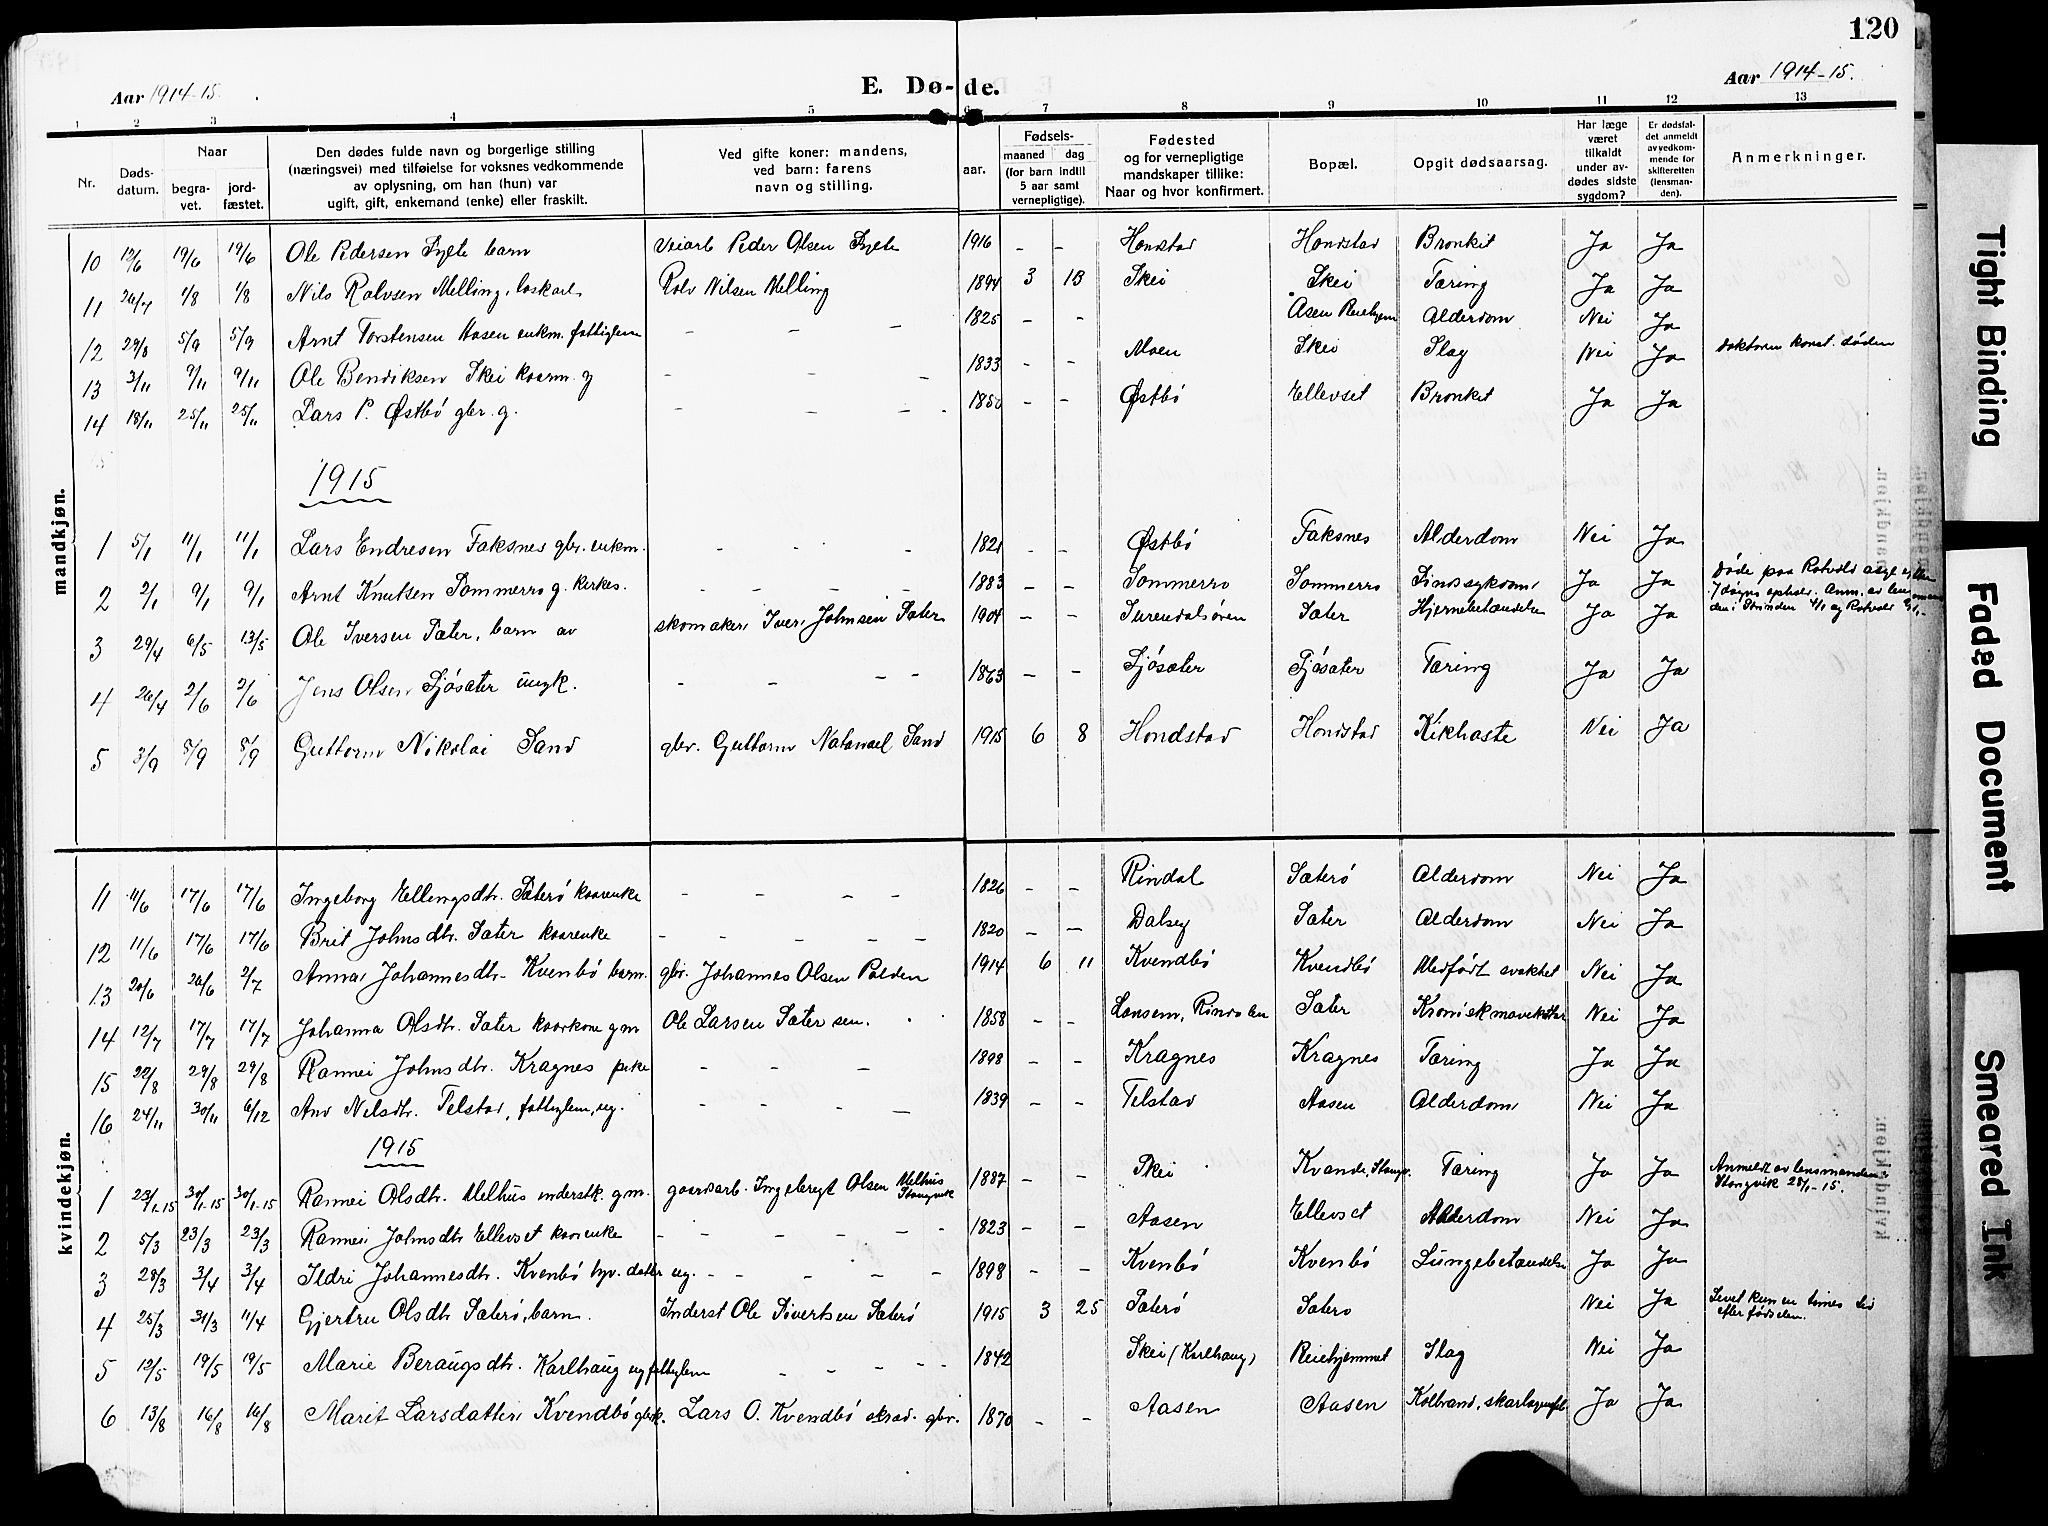 120
Aar 1914-15. E. Dø- de. Aar 1914-15.
1 2 3 4 5 6 7 8 9 10 11 12 13
Nr.
Døds-
datum.
Naar
begra-
vet.
jord-
fæstet.
Den dødes fulde navn og borgerlige stilling
(næringsvei) med tilføielse for voksnes vedkommende
av oplysning, om han (hun) var
ugift, gift, enkemand (enke) eller fraskilt.
Ved gifte koner: mandens,
ved barn: farens
navn og stilling.
aar.
Fødsels-
maaned dag
(for barn indtil
5 aar samt
vernepligtige).
Fødested
og for vernepligtige
mandskaper tillike:
Naar og hvor konfirmert.
Bopæl.
Opgit dødsaarsag.
Har læge
været
tilkaldt
under av-
dødes sidste
sygdom?
Er dødsfal-
det anmeldt
av vedkom-
mende for
skifteretten
(lensman-
den).
Anmerkninger.
mandkjøn.
10 12/6 19/6 19/6 Ole Pedersen Sylte barn Veiarb Peder Olsen Sylte 1916 - - Honstad Hondstad Bronkit Ja Ja
11 26/7 1/8 1/8 Nils Rolvsen Melling, loskarl. Rolv Nilsen Melling 1894 3 13 Skei Skei Tæring Ja Ja
12 29/8 5/9 5/9 Arnt Torstensen Aasen enkm. fattiglem - - - 1825 - - Asen Pleiehjem Alderdom Nei Ja
13 3/11 9/11 9/11 Ole Bendiksen Skei kaarm. g - - - 1833 - - Moen Skei Slag Nei Ja Doktoren konst. døden
14 18/11 25/11 25/11 Lars P. Østbø gbr. g. - - - - 1850 - - Østbø Ellevset Bronkit Ja Ja
1915
1 5/1 11/1 11/1 Lars Endresen Faksnes gbr. enkm. - - - 1821 - - Østbø Faksnes Alderdom Nei Ja
2 2/1 9/1 9/1 Arnt Knutsen Sommerro g. kirkes. - - - - 1883 - - Sommerro Sommerro Sindssykdom Ja Ja Døde paa Rotvold asyl efter
7 døgns ophold. Anm. av lensman
den i Strinden 4/1 og Rotvold
3 29/4 6/5 13/5 Ole Iversen Sæter, barn av skomaker Iver Johnsen Sæter 1904 - - Surendalsøren Sæter Hjernebetændelse Ja Ja
4 26/4 2/6 2/6 Jens Olsen Sjøsæter ungk. - - - - 1863 - - Sjøsæter Sjøsæter Tæring Ja Ja
5 3/9 8/9 8/9 Guttorm Nikolai Sand gbr. Guttorm Natanael Sand 1915 6 8 Hondstad Hondstad Kikhoste Nei Ja
kvindekjøn.
11 11/6 17/6 17/6 Ingeborg Ellingsdtr. Sæterø kaarenke - - - - 1826 - - Rindal Sæterø Alderdom Nei Ja
12 11/6 17/6 17/6 Brit Johnsdtr. Sæter kaarenke - - - - - 1820 - - Dalseg Sæter Alderdom Nei Ja
13 20/6 26/6 2/7 Anna Johannesdtr. Kvenbø barn. gbr. Johannes Olsen Polden 1914 6 11 Kvendbø Kvendbø Medfødt svakhet Nei Ja
14 12/7 17/7 17/7 Johanna Olsdtr. Sæter kaarkone gm Ole Larsen Sæter sen. 1858 - - Lansem, Rindalen Sæter Kronisk mavekatar Nei Ja
15 22/8 29/8 29/8 Rannei Johnsdtr. Kragnes pike - - - 1898 - - Kragnes Kragnes Tæring Ja Ja
16 24/11 30/11 6/12 Ane Nilsdtr. Telstad, fattiglem, ug. - - - - 1839 - - Telstad Aasen Alderdom Nei Ja
1915
1 23/1-15 30/1-15 30/1-15 Rannei Olsdtr. Melhus inderstk. gm. gaardarb. Ingebregt Olsen Melhus Stangvik 1887 - - Skei Kvande, Stangv. Tæring Ja Ja Anmeldt av lensmanden
Stangvik 28/1-15.
2 5/3 23/3 23/3 Rannei Johnsdtr Ellevset kaarenke - - - - - - 1823 - - Aasen Ellevset Alderdom Nei Ja
3 28/3 3/4 3/4 Ildri Johannesdtr. Kvenbø hjv. datter ug. - - - - - 1898 - - Kvenbø Kvenbø Lungebetændelse Ja Ja
4 25/3 31/3 11/4 Gjertru Olsdtr Sæterø, barn. Inderst Ole Sivertsen Sæterø 1915 3 25 Sæterø Sæterø Nei Ja Levet kun en times tid
efter fødselen.
5 12/5 19/5 19/5 Marie Beraugsdtr. Karlhaug ug fattiglem - - - - 1842 Skei (Karlhaug) Pleiehjemmet Slag Nei Ja
6 13/8 16/8 16/8 Marit Larsdatter Kvendbø gbrk. Lars O. Kvendbø skrad. gbr. 1870 - - Aasen Aasen Kolbrand, skarlagensfeb Ja Ja
Tight Binding
Faded Document
Smeared Ink